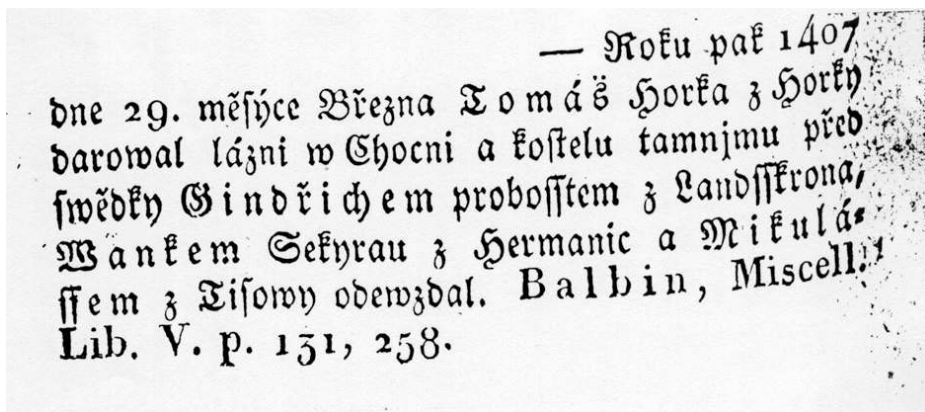 — Roku pak 1407
dne 29. měsýce Března Tomáš Horka z Horky
darowal lázni w Chocni a kostelu tamnjmu před
swědky Gindřichem probosstem z Landsskrona,
Wankem Sekyrau z Hermanic a Mikulá-
ssem z Tisowy odewzdal. Balbin, Miscell.
Lib. V. p. 131, 258.